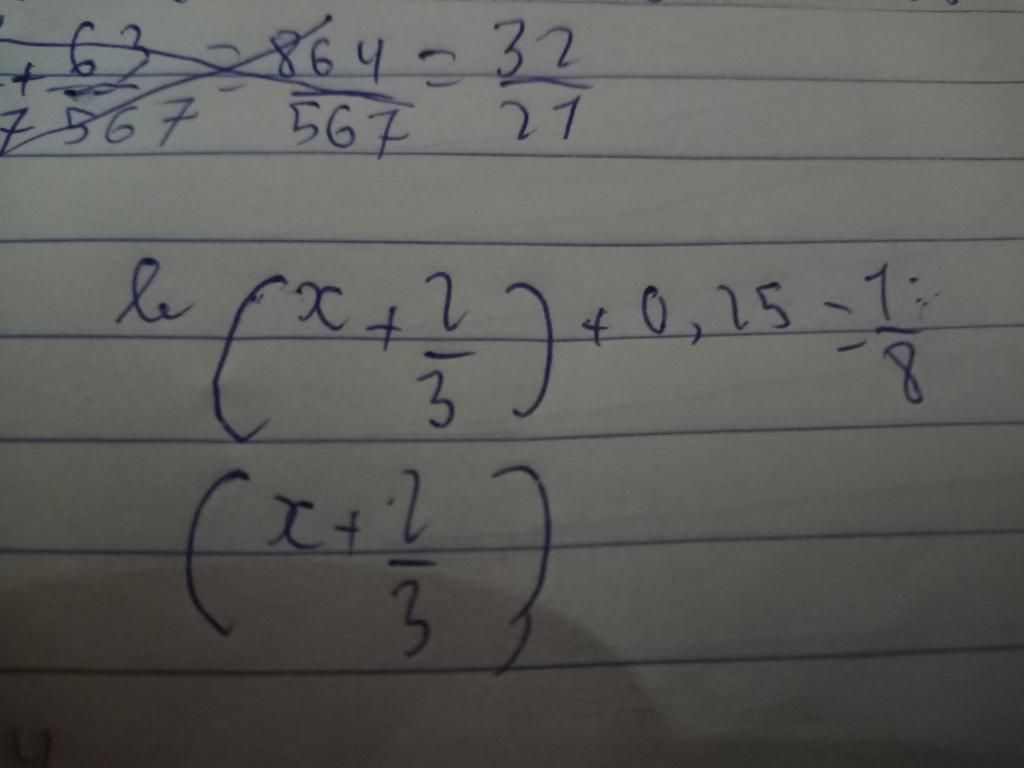 + 63/567 = 864/567 = 32/21
(x + 2/3) + 0,25 = 1/8
(x + 2/3)